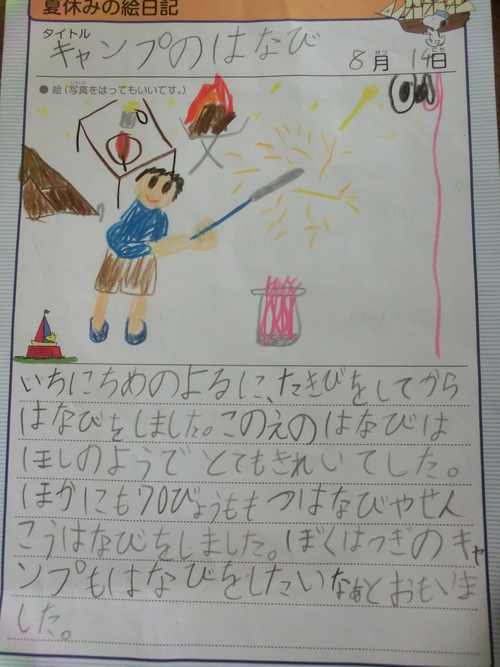 夏休みの絵日記
タイトル
キャンプのはなび
8月14日
がつ にち
しゃしん
●絵(写真をはってもいいです。)
いちにちめのよるに、たきびをしてから
はなびをしました。このえのはなびは
ほしのようでとてもきれいでした。
ほかにも70びょうももつはなびやせん
こうはなびをしました。ぼくはつぎのキャ
ンプもはなびをしたいなぁとおもいま
した。